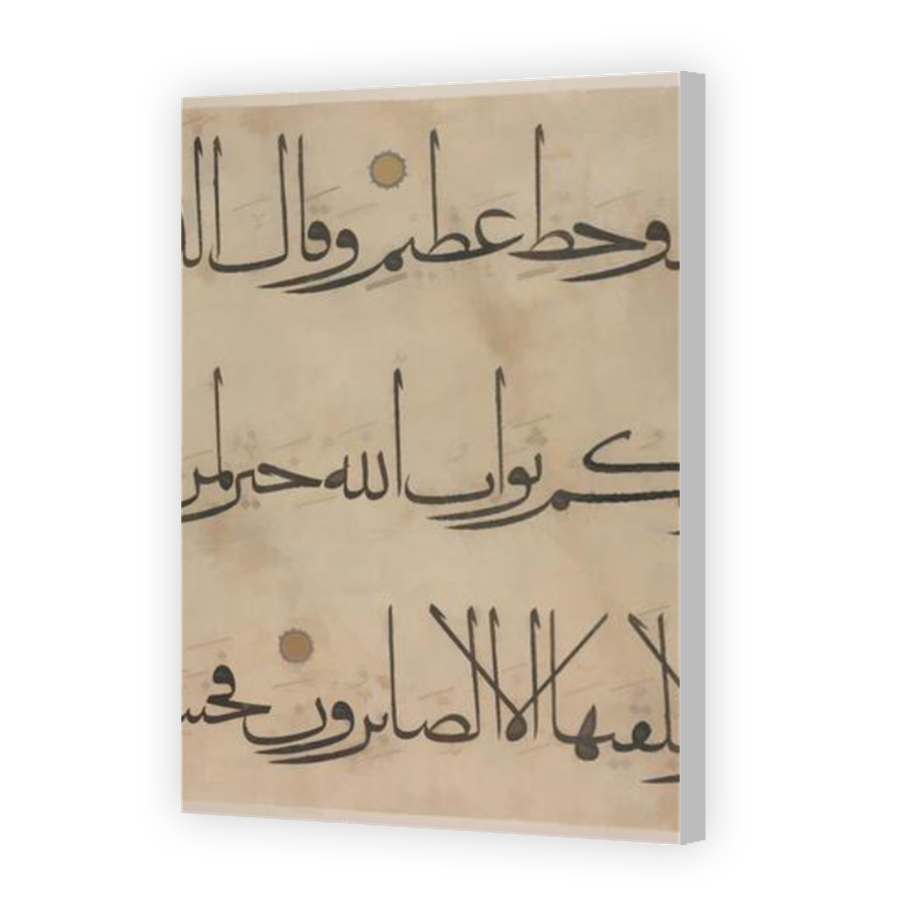 و حظ عظيم وقال
كم ثواب الله خير لمن
يلقيها الا الصابرون